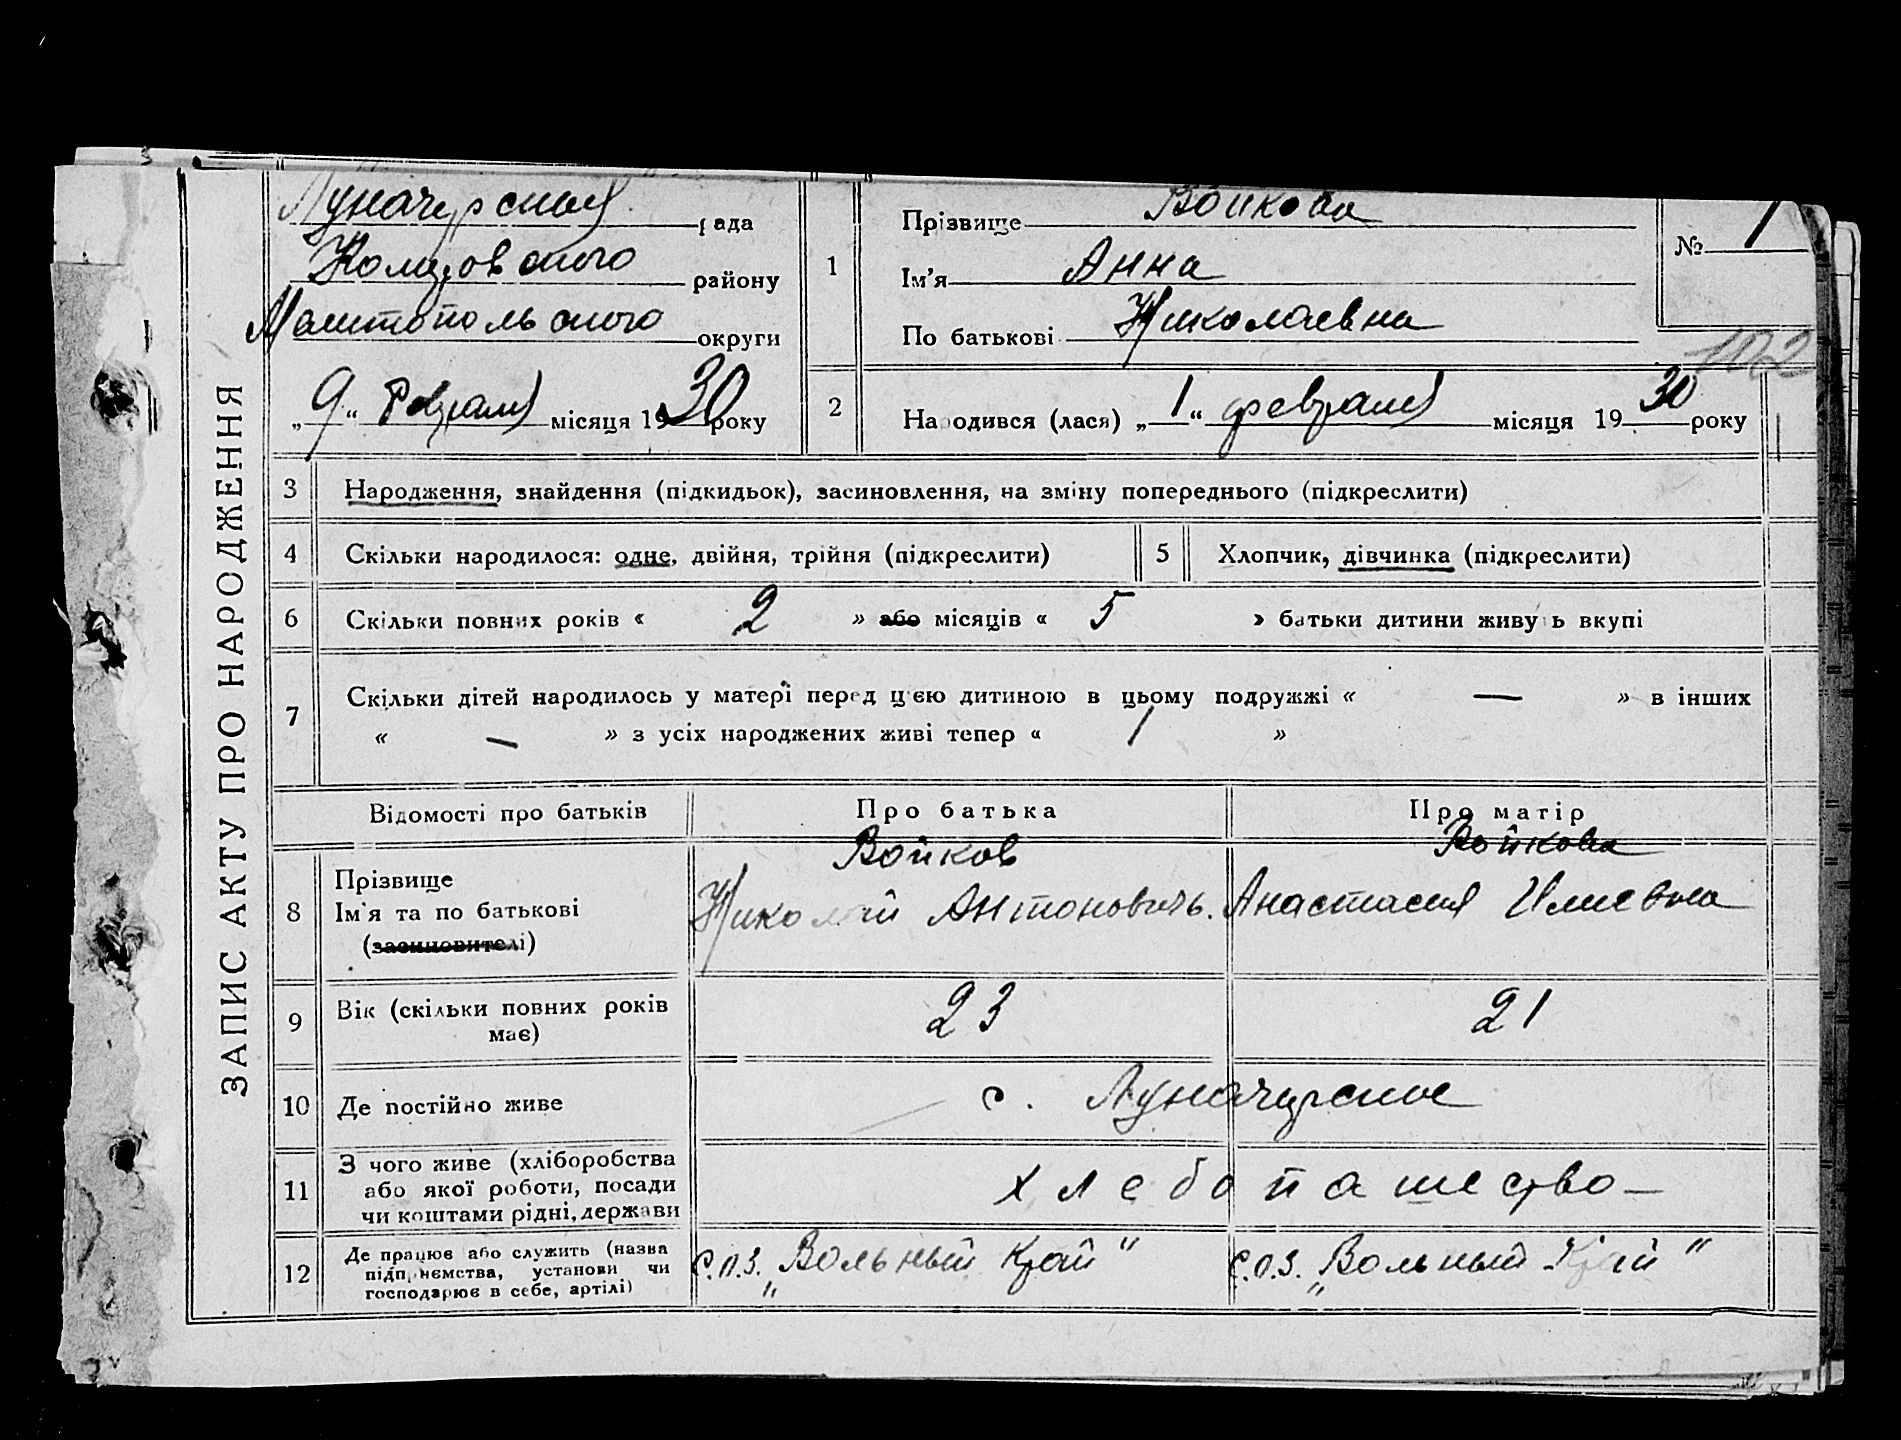 ЗАПИС АКТУ ПРО НАРОДЖЕННЯ
Луначарская рада
района
Мелитопольского округи
„9“ Февраля місяця 1930 року
1
Прізвище Войкова
Ім'я Анна
По батькові Николаевна
№ 1
2
Народився (лася) „1“ февраля місяця 1930 року
3 Народження, знайдення (підкидьок), засиновлення, на зміну попереднього (підкреслити)
4 Скільки народилося: одне, двійня, трійня (підкреслити)
5 Хлопчик, дівчинка (підкреслити)
6 Скільки повних років « 2 » або місяців « 5 » батьки дитини живуть вкупі
7 Скільки дітей народилось у матері перед цією дитиною в цьому подружжі « — » в інших
« — » з усіх народжених живі тепер « 1 »
Відомості про батьків
Про батька
Про матір
8 Прізвище
Ім'я та по батькові
(засиновителі)
Войков
Николай Антоновичь.
Войкова
Анастасия Илиевна
9 Вік (скільки повних років
має)
23
21
10 Де постійно живе
с. Луначарское
11 З чого живе (хліборобства
або якої роботи, посади
чи коштами рідні, держави
хлебопашество —
12 Де працює або служить (назва
підприємства, установи чи
господарює в себе, артілі)
С.О.З. „Вольный Край“
С.О.З. „Вольный Край“